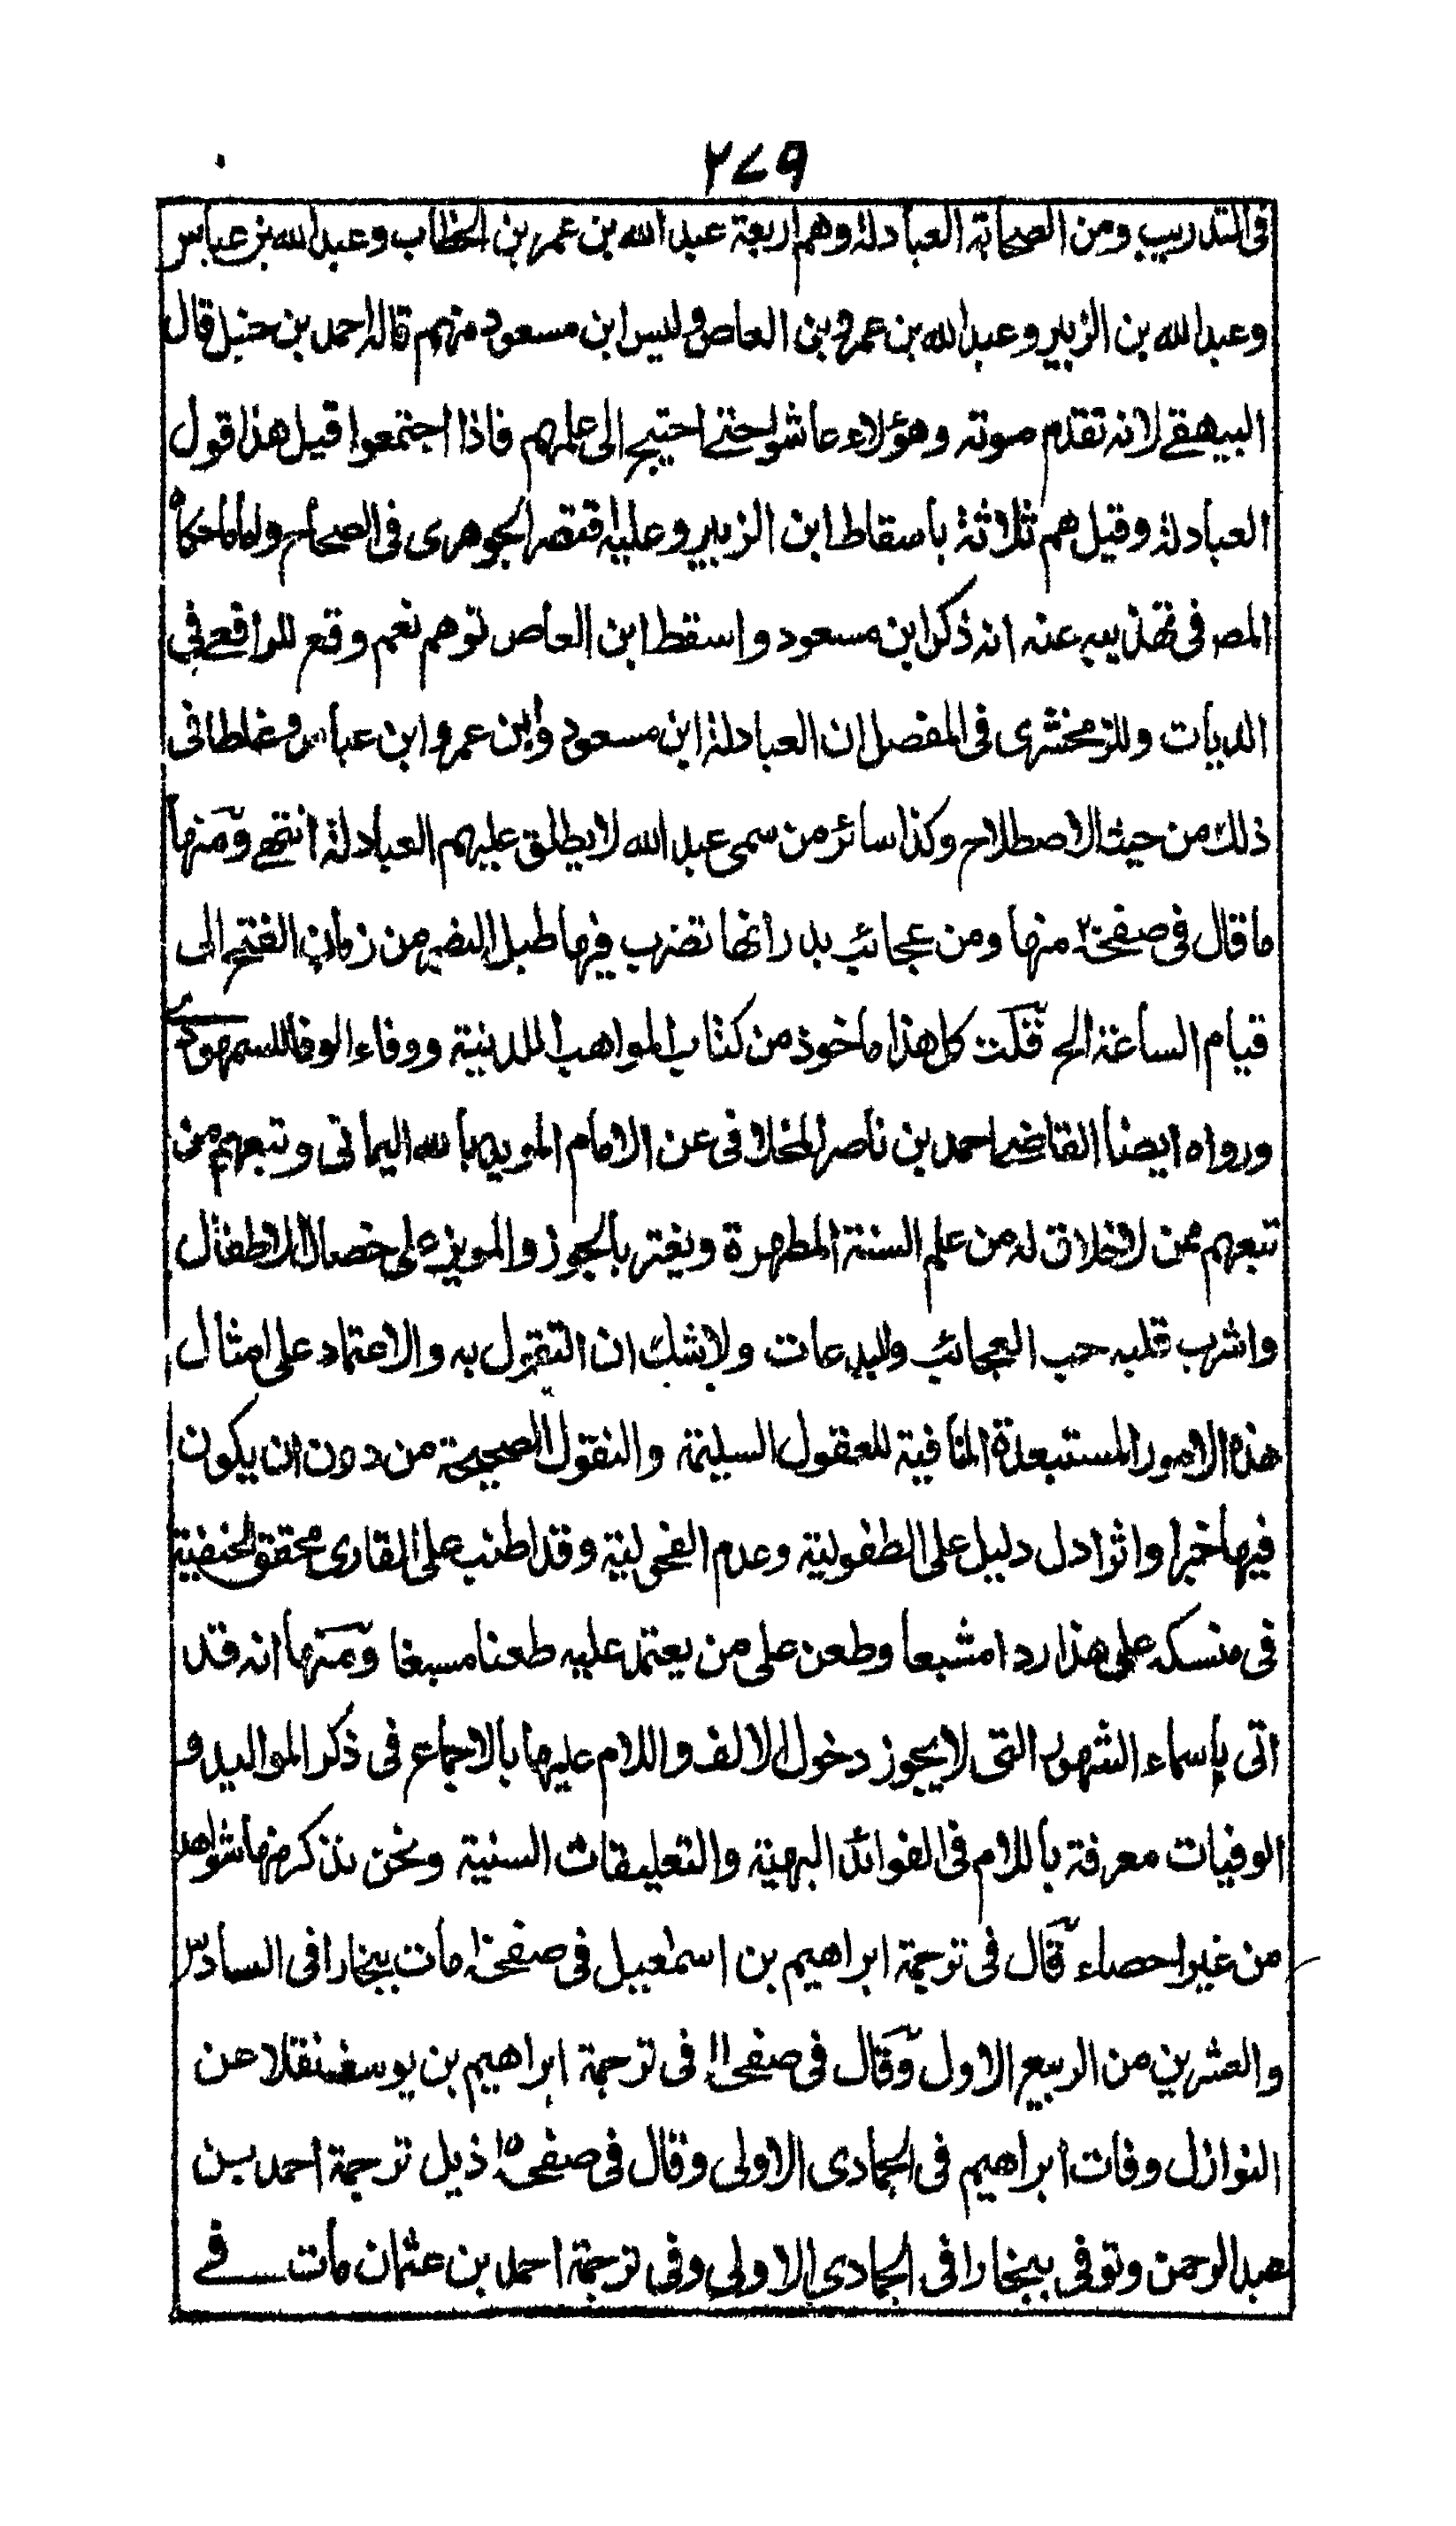 ٢٧٩
فى التدريب ومن الصحابة العبادلة وهم اربعة عبد الله بن عمر بن الخطاب وعبد الله بن عباس
وعبد الله بن الزبير وعبد الله بن عمرو بن العاص وليس ابن مسعود منهم قاله احمد بن حنبل قال
البيهقى لانه تقدم موته وهؤلاء عاشوا حتى احتيج الى علمهم فاذا اجتمعوا قيل هذا قول
العبادلة وقيل هم ثلاثة باسقاط ابن الزبير وعليه اقتصر الجوهرى فى الصحاح واما ما حكاه
المصـ فى تهذيبه عنه انه ذكر ابن مسعود واسقط ابن العاص توهم نعم وقع للرافعى فى
الديات وللزمخشرى فى المفصل ان العبادلة ابن مسعود وابن عمر وابن عباس وغلطا فى
ذلك من حيث الاصطلاح وكذا سائر من سمى عبد الله لا يطلق عليهم العبادلة انتهى ومنها
ما قال فى صفحة ٢ منها ومن عجائب بدر انها تضرب فيها طبل النصر من زمان الفتح الى
قيام الساعة الخ قلت كل هذا ماخوذ من كتاب المواهب اللدنية ووفاء الوفا للسمهودى
ورواه ايضا القاضى احمد بن ناصر المخلافى عن الامام المويد بالله اليمانى وتبعهم من
تبعهم ممن لا خلاق له من علم السنة المطهرة ويغتر بالجوز والمويز على خصال الاطفال
واشرب قلبه حب العجائب والبدعات ولا شك ان التقول به والاعتماد على امثال
هذه الامور المستبعدة المنافية للعقول السليمة والنقول الصحيحة من دون ان يكون
فيها خبر او اثر ادل دليل على الطفولية وعدم الفحولية وقد اطنب على القارى محقق الحنفية
فى منسكه على هذا ردا مشبعا وطعن على من يعتمد عليه طعنا مسبغا ومنها انه قد
اتى باسماء الشهور التى لا يجوز دخول الالف واللام عليها بالاجماع فى ذكر المواليد و
الوفيات معرفة باللام فى الفوائد البهية والتعليقات السنية ونحن نذكر منها شواهد
من غير احصاء قال فى ترجمة ابراهيم بن اسمعيل فى صفحة ١ مات ببخارا فى السادس
والعشرين من الربيع الاول وقال فى صفحة ١١ فى ترجمة ابراهيم بن يوسف نقلا عن
النوازل وفات ابراهيم فى الجمادى الاولى وقال فى صفحة ١٥ ذيل ترجمة احمد بن
عبد الرحمن وتوفى ببخارا فى الجمادى الاولى وفى ترجمة احمد بن عثمان مات فى